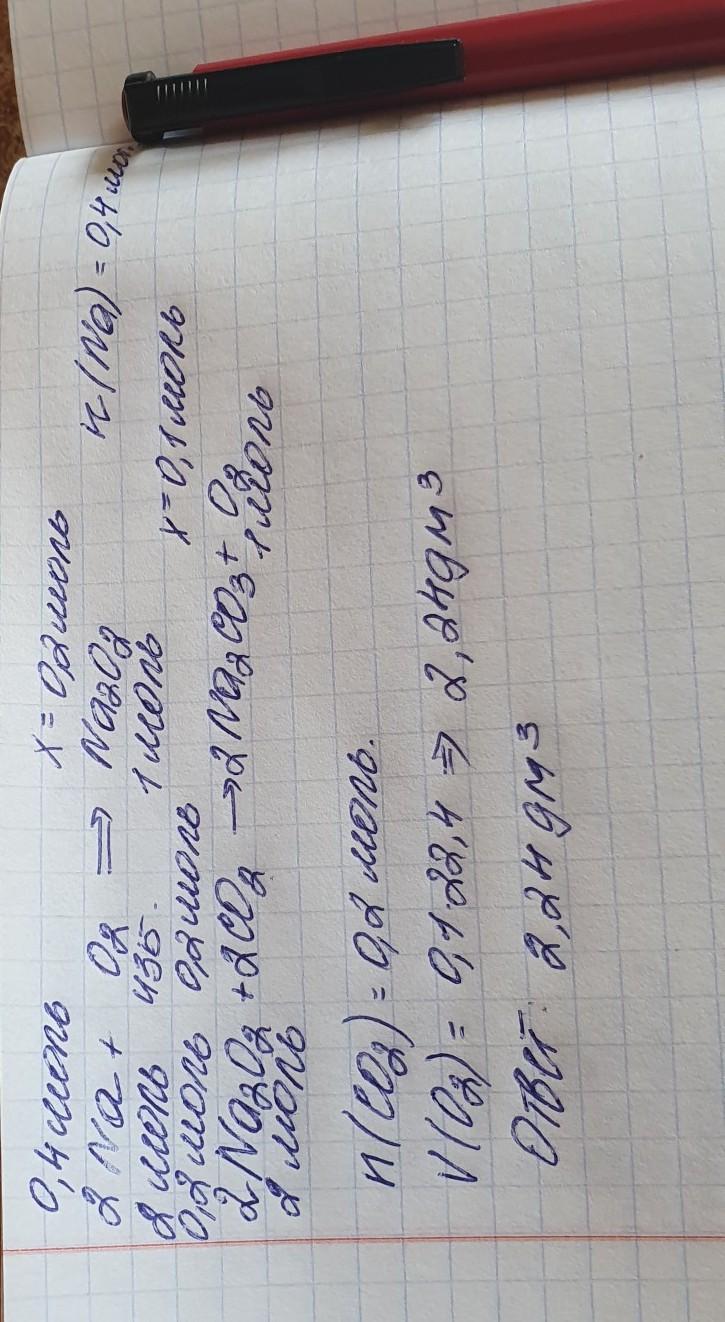 0,4 моль x = 0,2 моль
2 Na + O2 ⇒ Na2O2 n(Na) = 0,4 мо
2 моль изб. 1 моль
0,2 моль 0,2 моль x = 0,1 моль
2 Na2O2 + 2CO2 → 2Na2CO3 + O2
2 моль 1 моль
n(CO2) = 0,2 моль.
V(O2) = 0,1·22,4 ⇒ 2,24дм3
Ответ: 2,24дм3